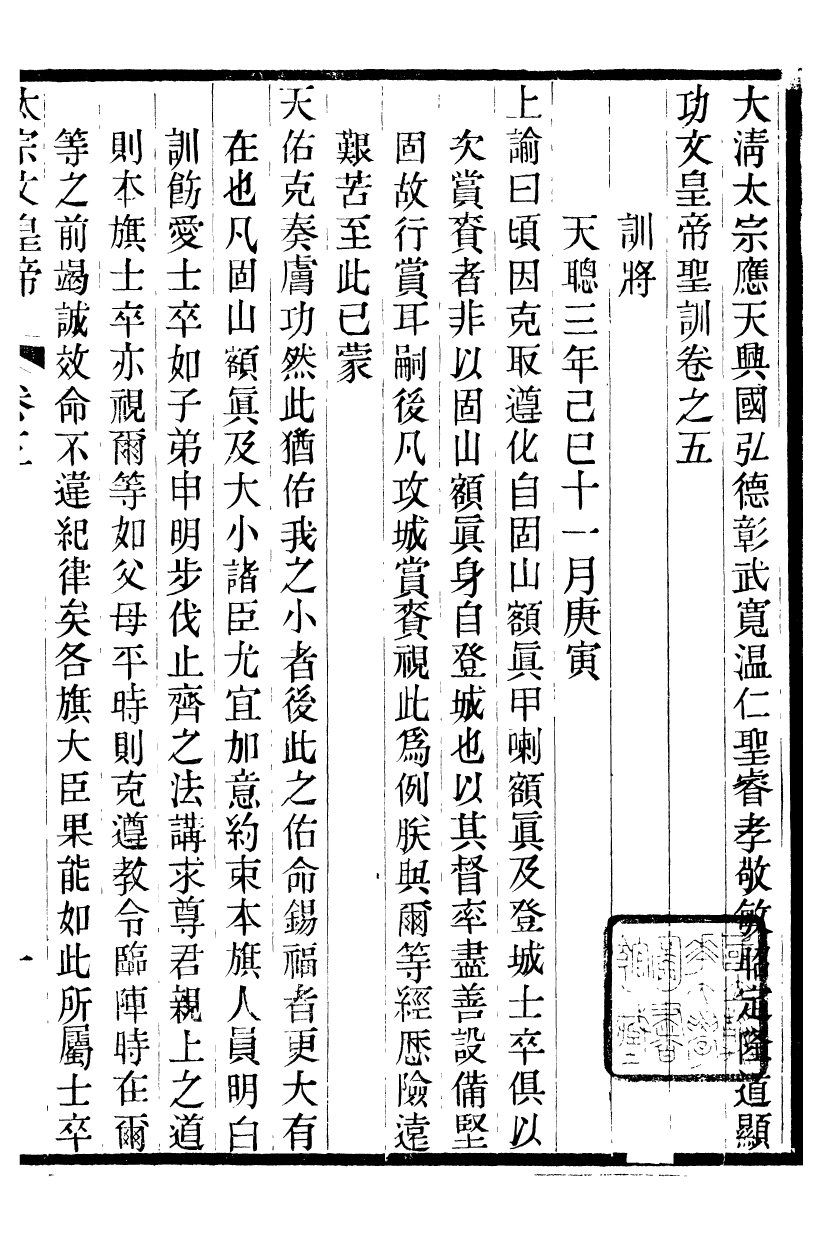 大淸太宗應天興國弘德彰武寬温仁聖睿孝敬敏昭定隆道顯
功文皇帝聖訓卷之五
訓將
天聰三年己巳十一月庚寅
上諭曰頃因克取遵化自固山額眞甲喇額眞及登城士卒俱以
次賞賚者非以固山額眞身自登城也以其督率盡善設備堅
固故行賞耳嗣後凡攻城賞賚視此爲例朕與爾等經歷險遠
艱苦至此已蒙
天佑克奏膚功然此猶佑我之小者後此之佑命錫福者更大有
在也凡固山額眞及大小諸臣尤宜加意約束本旗人員明白
訓飭愛士卒如子弟申明步伐止齊之法講求尊君親上之道
則本旗士卒亦視爾等如父母平時則克遵教令臨陣時在爾
等之前竭誠效命不違紀律矣各旗大臣果能如此所屬士卒
太宗文皇帝 卷五 一